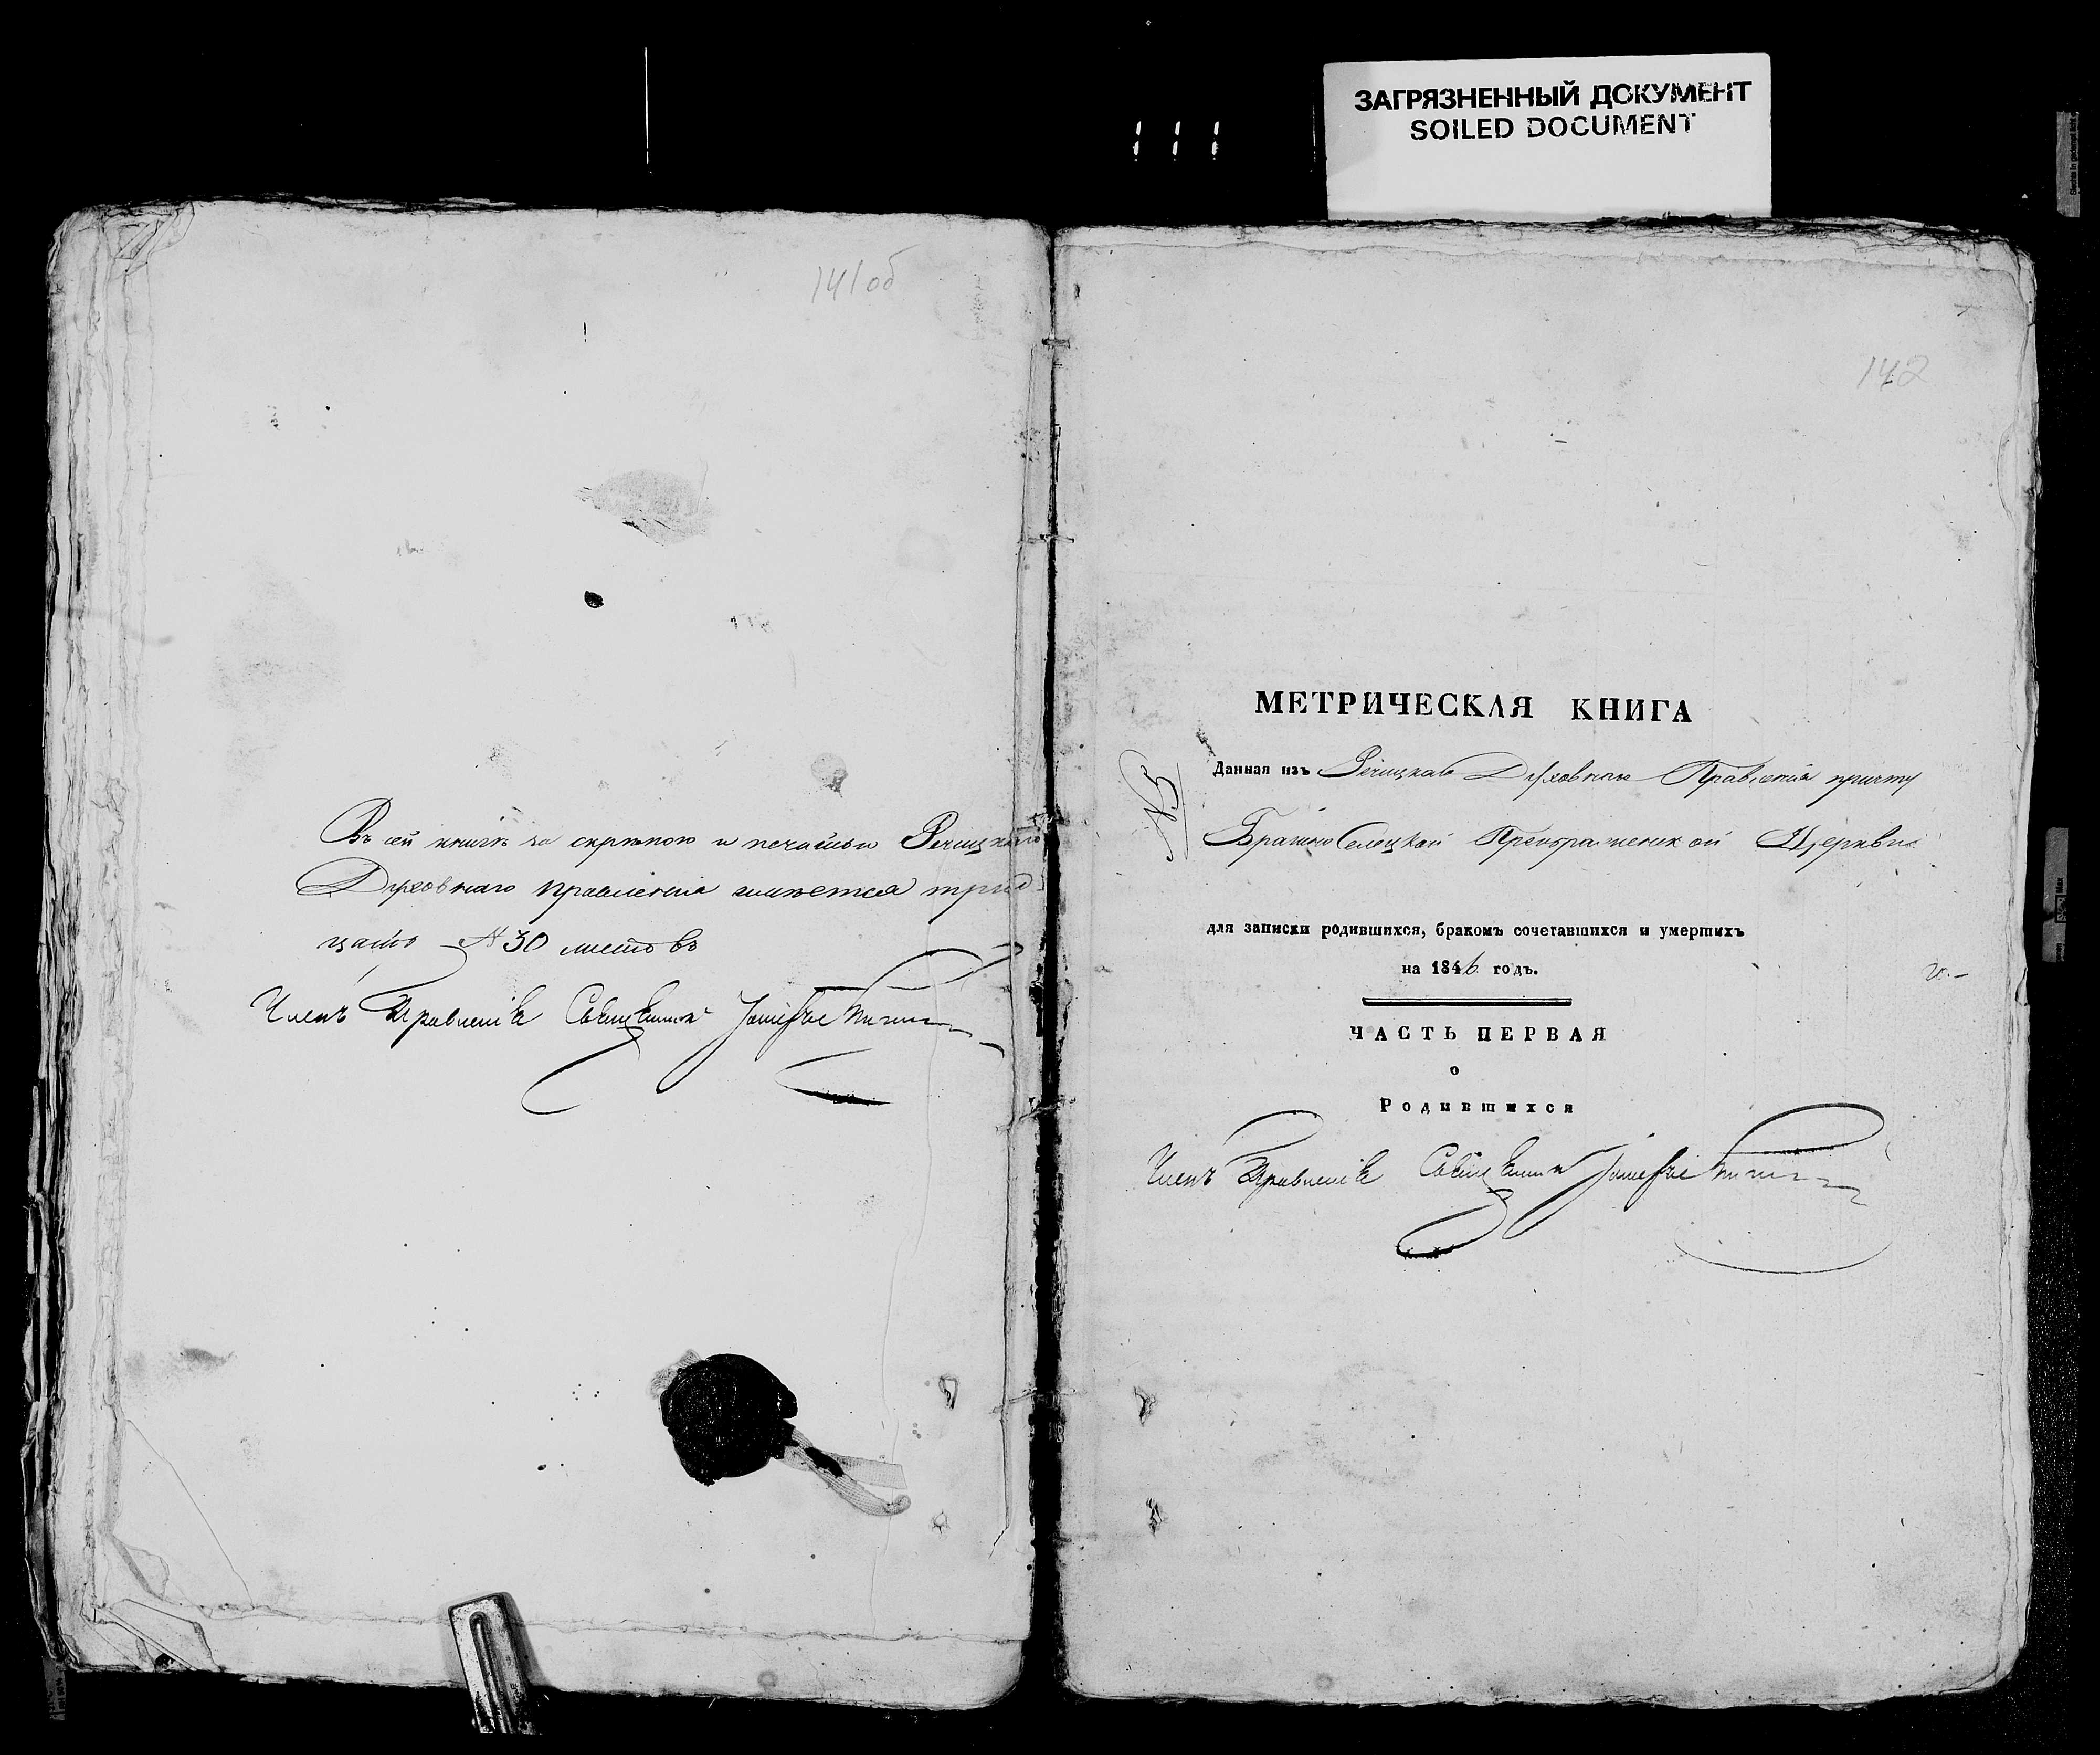 ЗАГРЯЗНЕННЫЙ ДОКУМЕНТ
SOILED DOCUMENT
141об
Въ сей книгѣ за скрѣпою и печатью Речицкаго
Духовнаго правленія имѣется трид-
цать № 30 листовъ
Членъ Правленія Священникъ
142
МЕТРИЧЕСКАЯ КНИГА
Данная изъ Речицкаго Духовнаго Правленія причту
Преображенской Церкви
для записки родившихся, бракомъ сочетавшихся и умершихъ
на 1846 годъ.
ЧАСТЬ ПЕРВАЯ
о
Родившихся
Членъ Правленія Священникъ